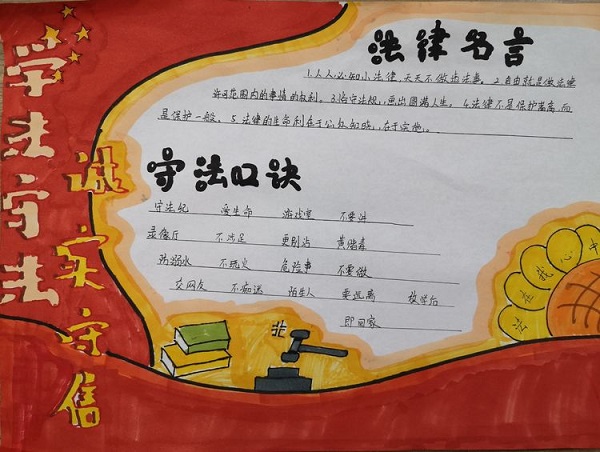 学法守法
诚实守信
法律名言
1.人人必知小法律,天天不做出法事。2.自由就是做法律
许可范围内的事情的权利。3.恪守法规,画出圆满人生。4.法律不是保护差离,而
是保护一般。5.法律的生命利在于公众知晓,在于实施。
守法口诀
守法纪 爱生命 游戏室 不要进
录像厅 不涉足 更别沾 黄赌毒
玩弱水 不玩火 危险事 不要做
交网友 不痴迷 陌生人 要远离 放学后
即回家
法在我心中